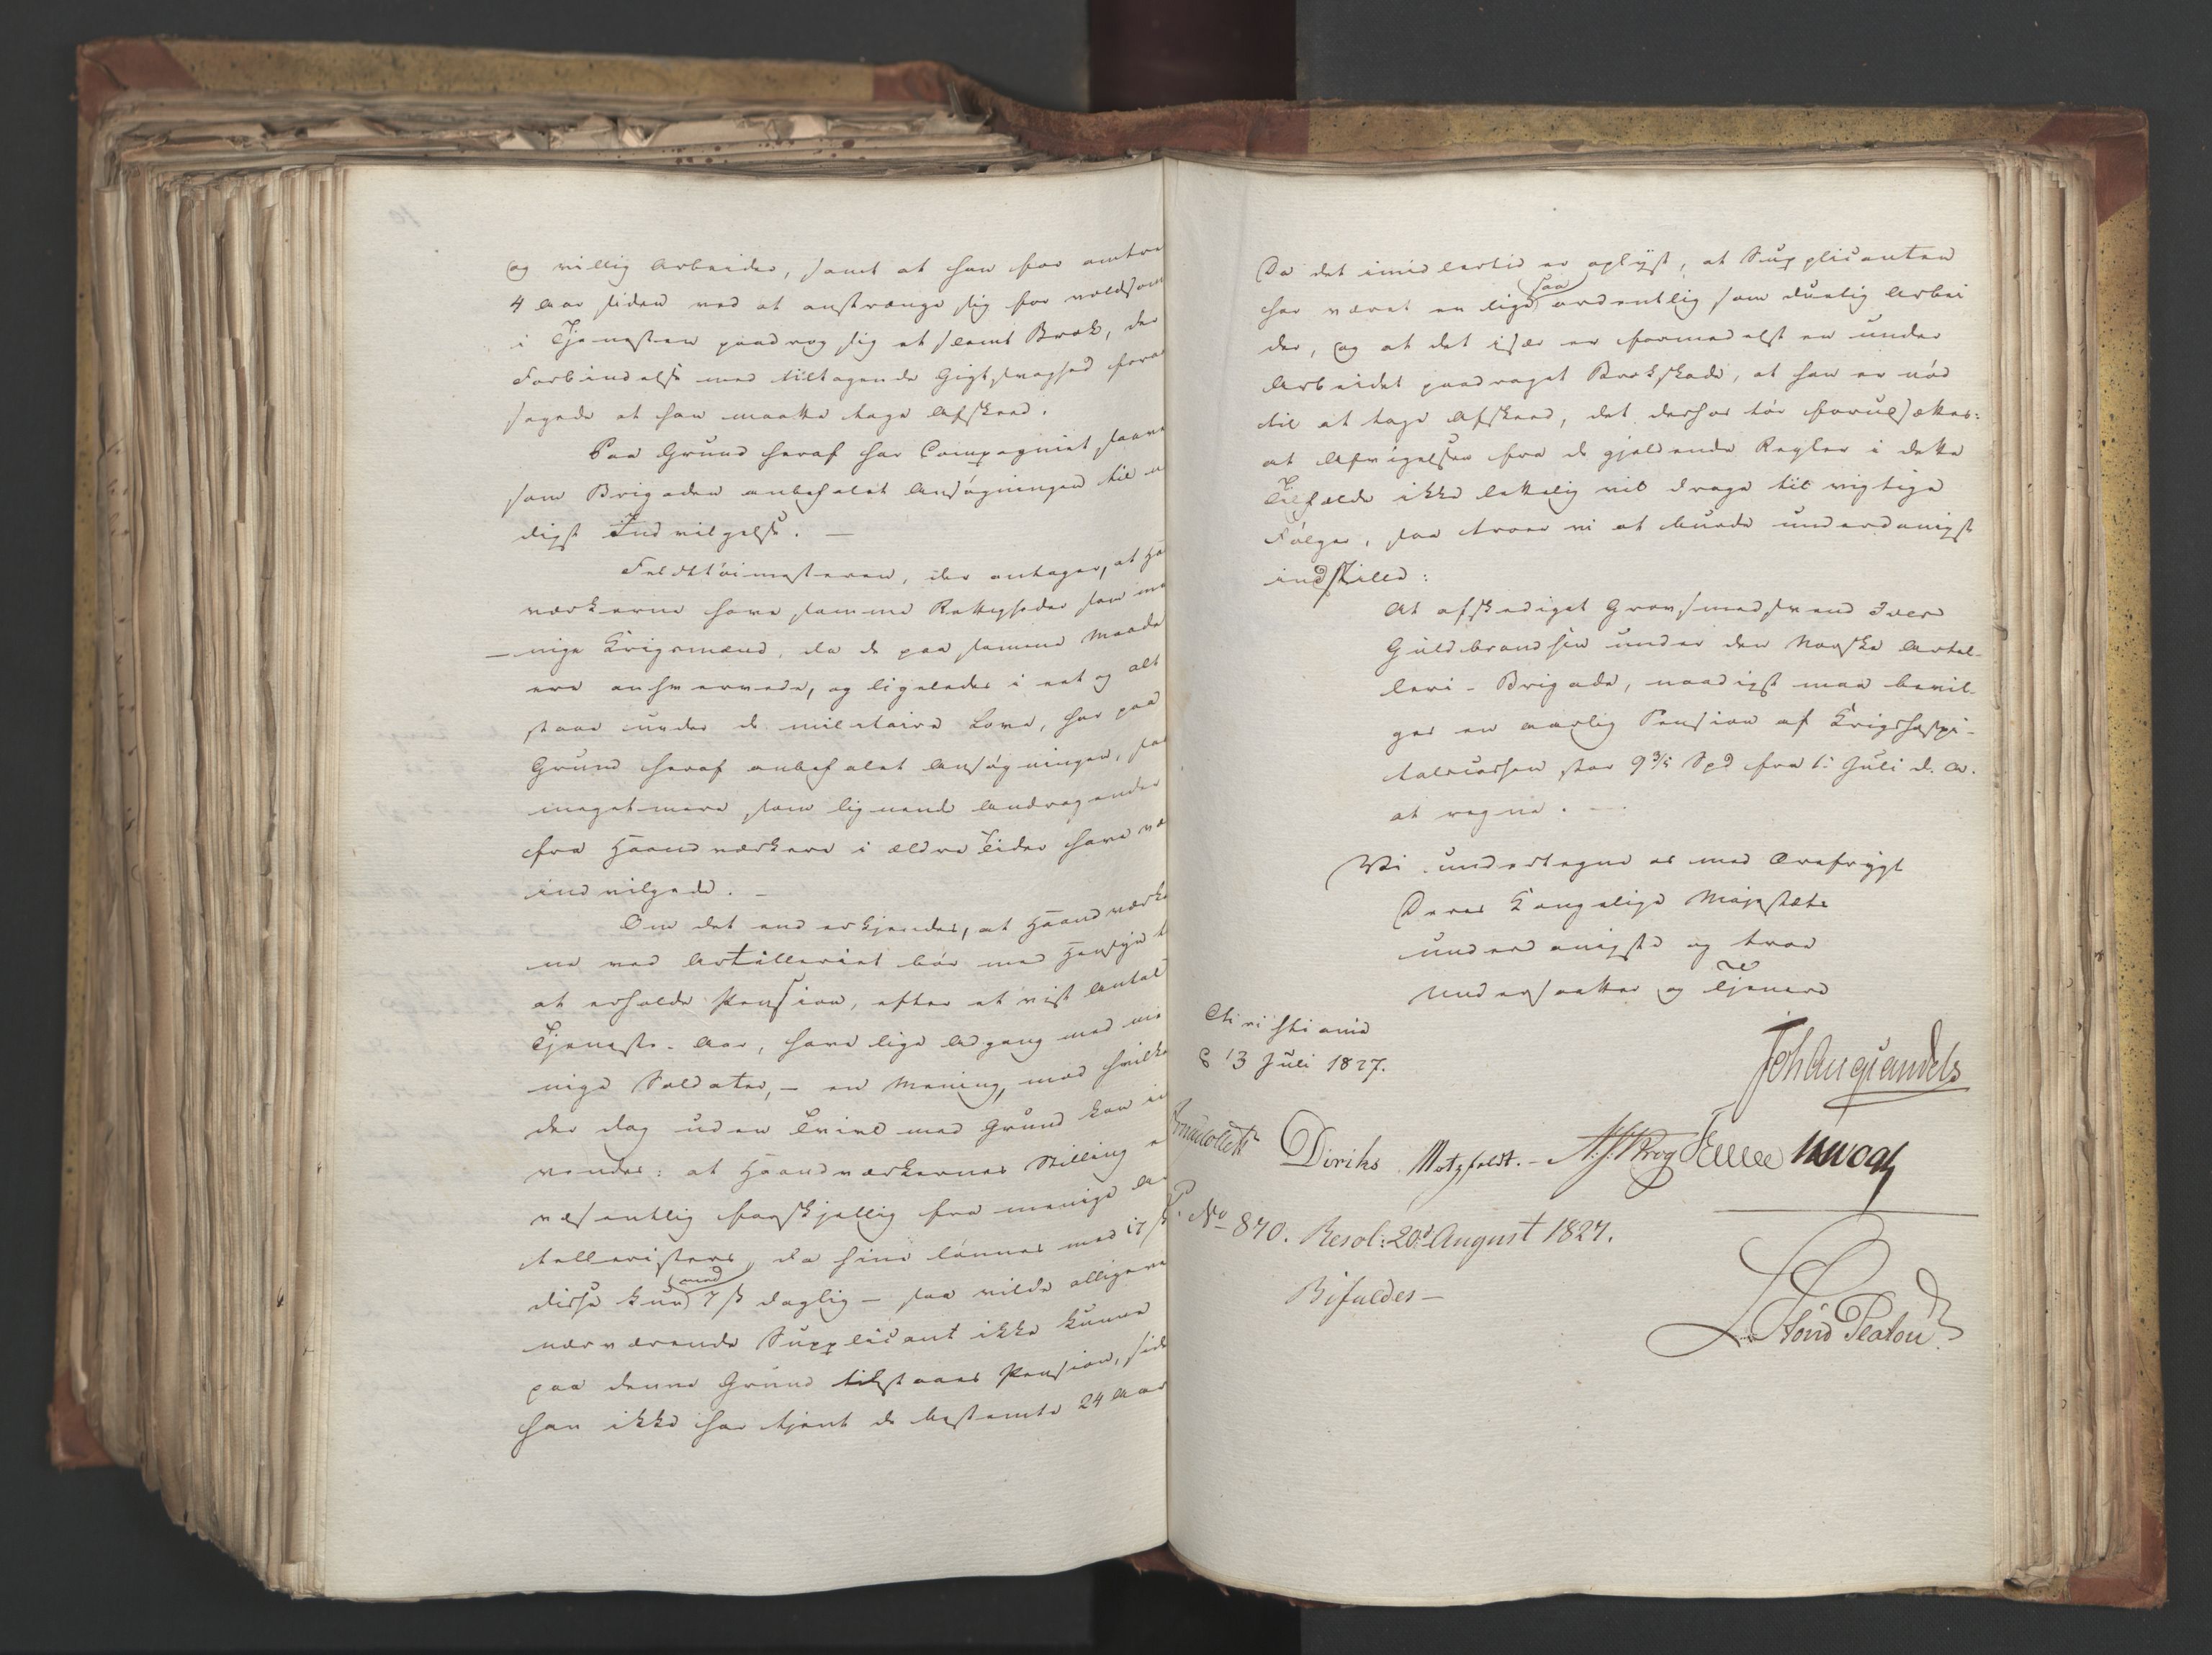 og villig Arbeider, samt at han for omtre
4 Aar siden ved at anstrænge sig for voldsom
i Tjenesten paadrog sig et slemt Brok, der
Forbindelse med tiltagende Gigtsvaghed foraar
sagede at han maatte tage Afskeed.
Paa Grund heraf har Compagniet saavel
som Brigaden anbefalet Ansøgningen til n
digst Indvilgelse. —
Feldttøimesteren, der antager, at Ha
værkerne have samme Rettigheder som me
nige Krigsmænd, da de paa samme Maade
ere anhvervede, og ligeledes i eet og alt
staae under de militaire Love, har paa
Grund heraf anbefalet Ansøgningen, saa
megetmere, som lignende Andragender
fra Haandværkere i ældre Tider have væ
indvilgede. —
Om det end erkjendes, at Haandværke
ne ved Artilleriet bør med Hensyn t
at erholde Pension, efter et vist Antal
Tjeneste-Aar, have lige Adgang med me
nige Soldater, — en Mening, mod hvilken
der dog uden Tvivl med Grund kan in
vendes: at Haandværkernes Stilling e
væsentlig forskjellig fra menige Ar
tellerister, da hine lønnes med 17 ß
disse kun med 7 ß daglig — saa vilde alligeve
nærværende Supplicant ikke kunne
paa denne Grund tilstaaes Pension, side
han ikke har tjent de bestemte 24 Aar
Da det imidlertid er oplyst, at Supplicanten
har været en lige saa ordentlig som duelig Arbei
der, og at det især er formedelst en under
Arbeidet paadraget Brokskade, at han er nød
til at tage Afskeed, det derhos tør forudsættes:
at Afvigelsen fra de gjeldende Regler i dette
Tilfælde ikke lettelig vil drage til vigtige
Følger, saa troer vi at burde underdanigst
indstille:
At afskediget Grovsmedsvend Iver
Guldbrandsen under den Norske Artel-
leri-Brigade, naadigst maa bevil-
ges en aarlig Pension af Krigshospi-
talscassen stor 9 3/5 Spd fra 1: Juli d. A.
at regne. —
Vi undertegne os med Ærefrygt
Deres Kongelige Majestæts
underdanigste og troe
Undersaatter og Tjenere
Christiania
d 13 Juli 1827.
Joh Aug Sandels
Jonas Collett
Diriks Motzfeldt. — A. J. Krog J Holst
P. No 870. Resol: 20d August 1827.
Bifaldes —
Lövenskiold